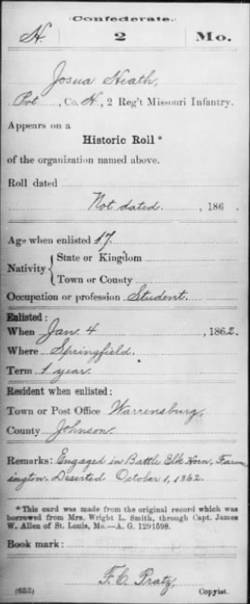 Confederate.
H. 2 Mo.
Josua Heath,
Pvt, Co. H., 2 Reg't Missouri Infantry.
Appears on a
Historic Roll*
of the organization named above.
Roll dated
Not dated. , 186 .
Age when enlisted 17.
Nativity { State or Kingdom
Town or County
Occupation or profession Student.
Enlisted:
When Jan. 4 , 1862.
Where Springfield.
Term 1 year.
Resident when enlisted:
Town or Post Office Warrensburg,
County Johnson.
Remarks: Engaged in Battle Elk Horn, Farm
ington. Deserted October 1, 1862.
*This card was made from the original record which was
borrowed from Mrs. Wright L. Smith, through Capt. James
W. Allen of St. Louis, Mo.—A. G. 1291598.
Book mark:
F. C. Pratz,
(653) Copyist.